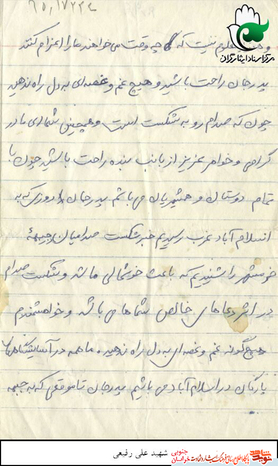 مرکز اسناد ایثارگران
و معلوم نیست که چه وقت می‌خواهند ما را اعزام کنند
پدر جان راحت باشید و هیچ غم و غصه‌ای به دل راه ندهید
چون که صدام رو به شکست است و همچنین شما ای مادر
گرامی و خواهر عزیز از بابت بنده راحت باشید چون با
تمام دوستان و همشهریان می باشم پدر جان روزی که به
اسلام آباد غرب رسیدیم خبر شکست صدامیان در جبهه
خرمشهر را شنیدیم که باعث خوشحالی ما شد و شکست صدام
در اثر دعاهای خالص شماها می باشد و خواهشمندم
هیچگونه غم و غصه‌ای به دل راه ندهید ما همه در آسایشگاه
پادگان در اسلام آباد می باشیم پدر جان تا موقعی که به جبهه
شهید علی رفیعی